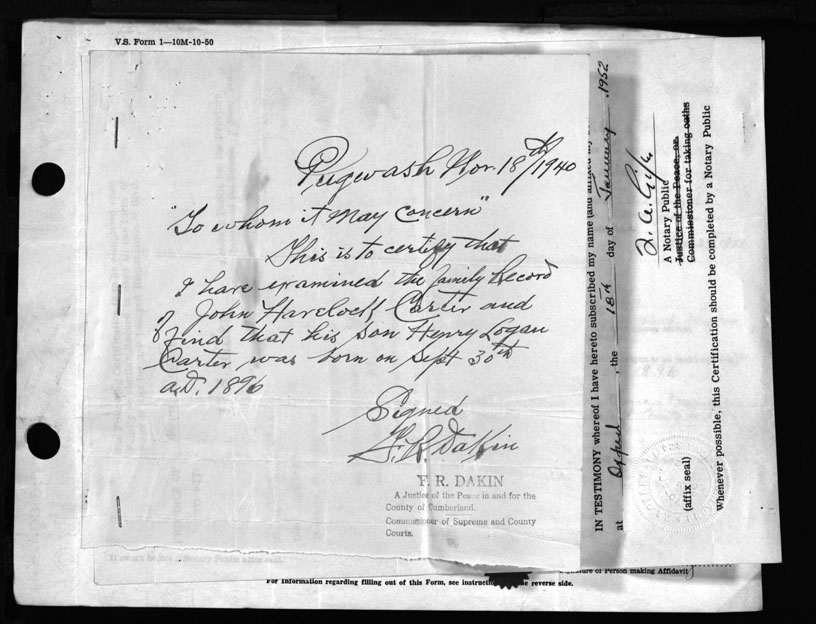 V.S. Form 1—10M-10-50
Pugwash Nov. 18th/1940
"To whom it May Concern"
This is to certify that
I have examined the family Record
of John Havelock Carter and
find that his son Henry Logan
Carter was born on Sept 30th
A.D. 1896
Signed
F. R. Dakin
F. R. DAKIN
A Justice of the Peace in and for the
County of Cumberland.
Commissioner of Supreme and County
Courts.
IN TESTIMONY whereof I have hereto subscribed my name (and affixed my
at Oxford, the 18th day of January, 1952
A Notary Public
Justice of the Peace, or
Commissioner for taking oaths
(affix seal)
Whenever possible, this Certification should be completed by a Notary Public
of Person making Affidavit)
For information regarding filling out of this Form, see reverse side.